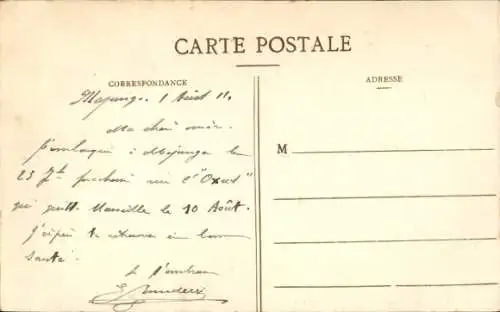 CARTE POSTALE
CORRESPONDANCE
ADRESSE
Majunga 1 Août 11.
Ma chère mère.
J'embarque à Majunga le
25 7bre prochain sur l'"Oxus"
qui quitte Marseille le 10 Août.
J'espère te retrouver en bonne
santé.
Je t'embrasse
M